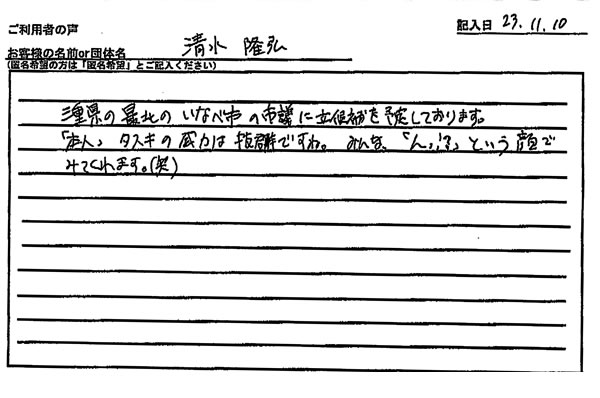 ご利用者の声
記入日 23.11.10
お客様の名前or団体名 清水 隆弘
(匿名希望の方は「匿名希望」とご記入ください)
三重県の最北の いなべ市 の市議に立候補を予定しております。
「本人」タスキの威力は抜群ですね。 みんな、「ん?!」という顔で
みてくれます。(笑)